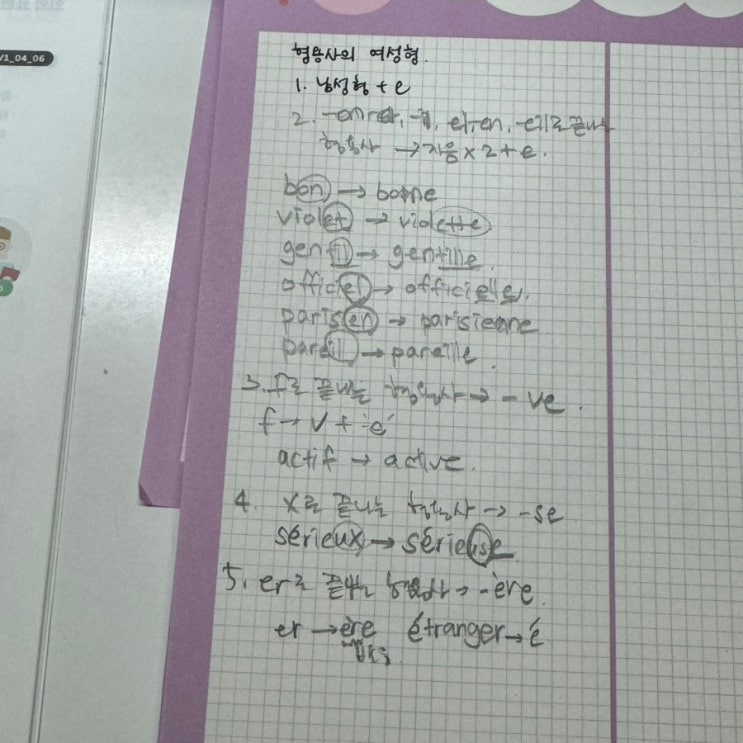 V1_04_06
형용사의 여성형.
1. 남성형 + e
2. -on, el, en, -et로 끝나는
형용사 → 자음 × 2 + e.
bon → bonne
violet → violette
gentil → gentille.
officiel → officielle.
parisien → parisienne
pareil → pareille.
3. f로 끝나는 형용사 → -ve.
f → v + 'e'
actif → active.
4. x로 끝나는 형용사 → -se
sérieux → sérieuse
5. er로 끝나는 형용사 → -ère.
er → ère étranger → é